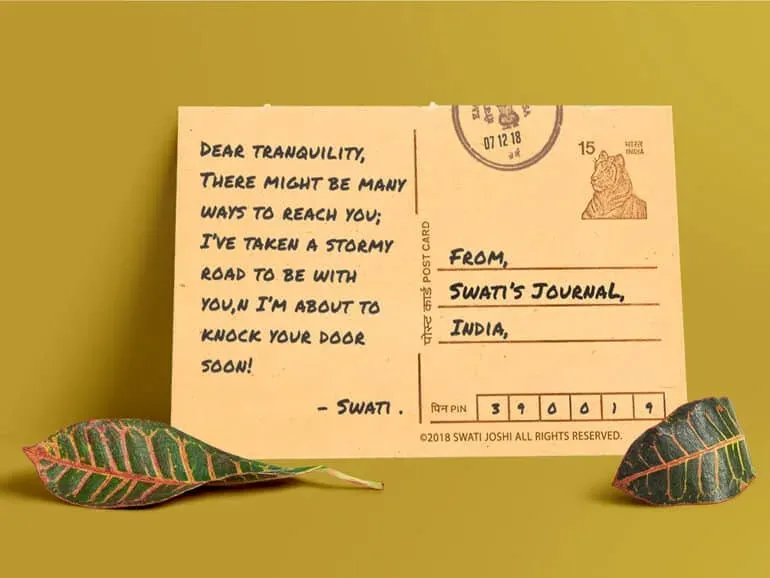 DEAR TRANQUILITY,
THERE MIGHT BE MANY
WAYS TO REACH YOU;
I'VE TAKEN A STORMY
ROAD TO BE WITH
YOU,N I'M ABOUT TO
KNOCK YOUR DOOR
SOON!
- SWATI .
पोस्ट कार्ड POST CARD
07 12 18
15 भारत
INDIA
FROM,
SWATI'S JOURNAL,
INDIA,
पिन PIN 3 9 0 0 1 9
©2018 SWATI JOSHI ALL RIGHTS RESERVED.